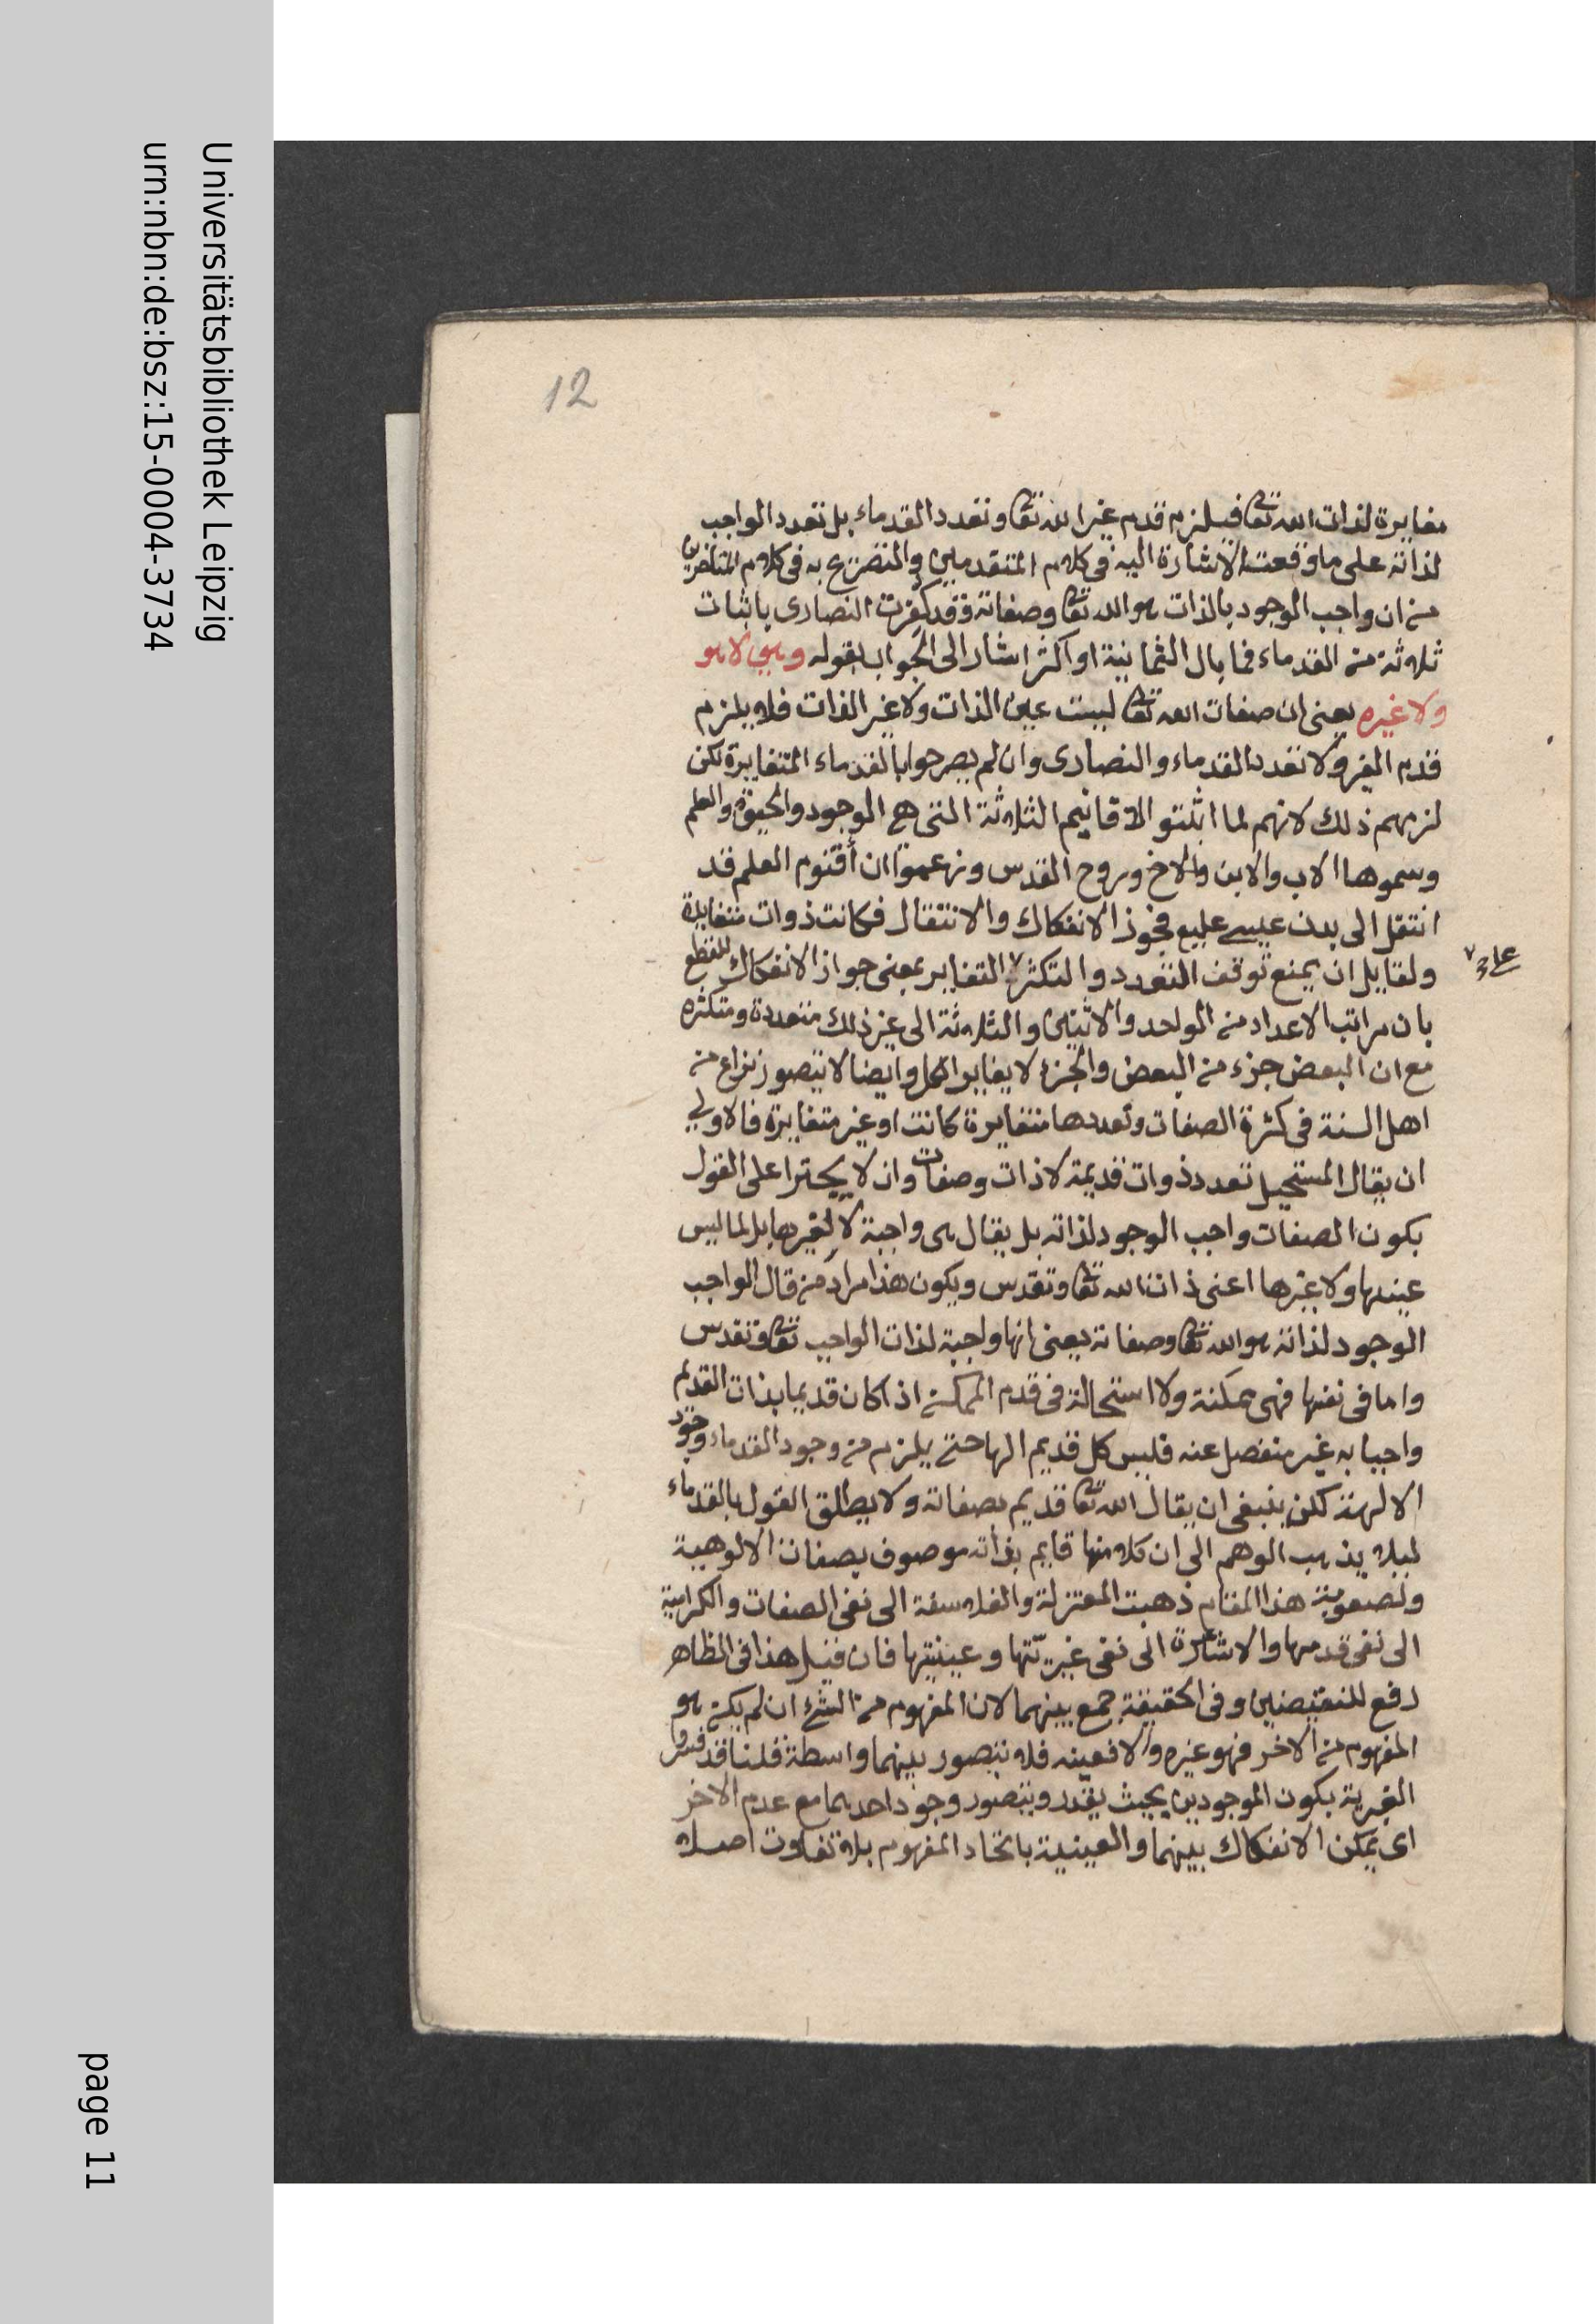 Universitätsbibliothek Leipzig
urn:nbn:de:bsz:15-0004-3734
12
مغايرة لذات الله تعا فيلزم قدم غير الله تعا وتعدد القدماء بل تعدد الواجب
لذاته على ما وقعت الاشارة اليه في كلام المتقدمين والتصريح به في كلام المتأخرين
من ان واجب الوجود بالذات هو الله تعا وصفاته وقد كفرت النصارى باثبات
ثلاثة من القدماء فما بال الثمانية او اكثر اشار الى الجواب بقوله وهي لا هو
ولا غيره يعنى ان صفات الله تعا ليست عين الذات ولا غير الذات فلا يلزم
قدم الغير ولا تعدد القدماء والنصارى وان لم يصرحوا بالقدماء المتغايرة لكن
لزمهم ذلك لانهم لما اثبتو الاقانيم الثلاثة التى هي الوجود والحيوة والعلم
وسموها الاب والابن والاخ وروح القدس وزعموا ان أقنوم العلم قد
انتقل الى بدن عيسى عليع فجوز الانفكاك والانتقال فكانت ذوات متغايرة
ولقايل ان يمنع توقف التعدد والتكثر التغاير بمعنى جواز الانفكاك للقطع
على
بان مراتب الاعداد من الواحد والاثنين والثلاثة الى غير ذلك متعددة ومتكثره
مع ان البعض جزء من البعض والجزء لا يغاير الكل وايضا لا يتصور نزاع من
اهل السنة في كثرة الصفات وتعددها متغايرة كانت او غير متغايرة فالاولى
ان يقال المستحيل تعدد ذوات قديمة لا ذات وصفات وان لا يجترا على القول
بكون الصفات واجب الوجود لذاته بل يقال هى واجبة لا لغيرها بل لما ليس
عينها ولا غيرها اعنى ذات الله تعا وتقدس ويكون هذا مراد من قال الواجب
الوجود لذاته هو الله تعا وصفاته يعنى انها واجبة لذات الواجب تعا وتقدس
واما فى نفسها فهى ممكنة ولا استحالة فى قدم الممكن اذا كان قديما بذات القديم
واجبا به غير منفصل عنه فليس كل قديم الها حتى يلزم من وجود القدماء وجود
الالهة لكن ينبغى ان يقال الله تعا قديم بصفاته ولا يطلق القول بالقدماء
ليلا يذهب الوهم الى ان كلا منها قايم بذاته موصوف بصفات الالوهية
ولصعوبة هذا المقام ذهبت المعتزلة والفلاسفة الى نفى الصفات والكرامية
الى نفى قدمها والاشاعرة الى نفى غيريّتها وعينيتها فان قيل هذا فى الظاهر
رفع للنقيضين وفى الحقيقة جمع بينهما لان المفهوم من الشئ ان لم يكن هو
المفهوم من الاخر فهو غيره والا فعينه فلا يتصور بينهما واسطة قلنا قد فسروا
الغيرية بكون الموجودين بحيث يقدر ويتصور وجود احدهما مع عدم الاخر
اى يمكن الانفكاك بينهما والعينية باتحاد المفهوم بلا تفاوت اصلا
page 11